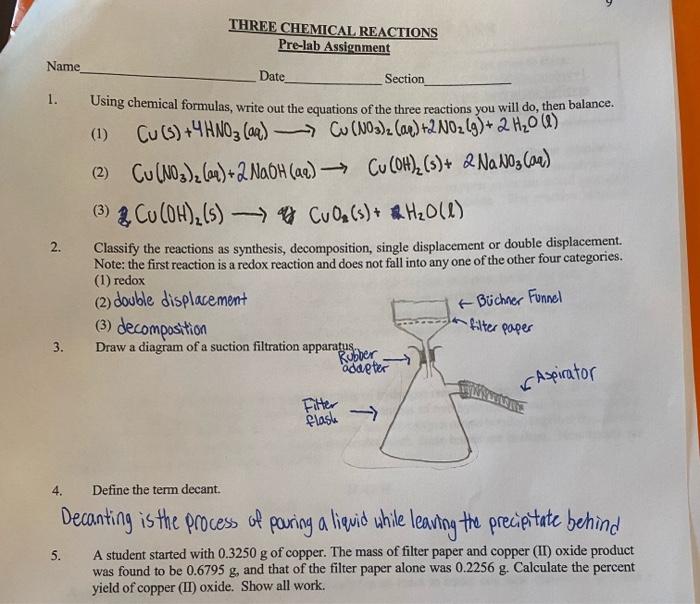 THREE CHEMICAL REACTIONS
Pre-lab Assignment
Name Date Section
1. Using chemical formulas, write out the equations of the three reactions you will do, then balance.
(1) Cu(s) + 4HNO₃(aq) → Cu(NO₃)₂(aq) + 2NO₂(g) + 2H₂O(l)
(2) Cu(NO₃)₂(aq) + 2NaOH(aq) → Cu(OH)₂(s) + 2NaNO₃(aq)
(3) Cu(OH)₂(s) → CuO(s) + H₂O(l)
2. Classify the reactions as synthesis, decomposition, single displacement or double displacement.
Note: the first reaction is a redox reaction and does not fall into any one of the other four categories.
(1) redox
(2) double displacement
(3) decomposition
3. Draw a diagram of a suction filtration apparatus.
← Büchner Funnel
filter paper
Rubber
adapter
Aspirator
Filter
flask
4. Define the term decant.
Decanting is the process of pouring a liquid while leaving the precipitate behind
5. A student started with 0.3250 g of copper. The mass of filter paper and copper (II) oxide product
was found to be 0.6795 g, and that of the filter paper alone was 0.2256 g. Calculate the percent
yield of copper (II) oxide. Show all work.